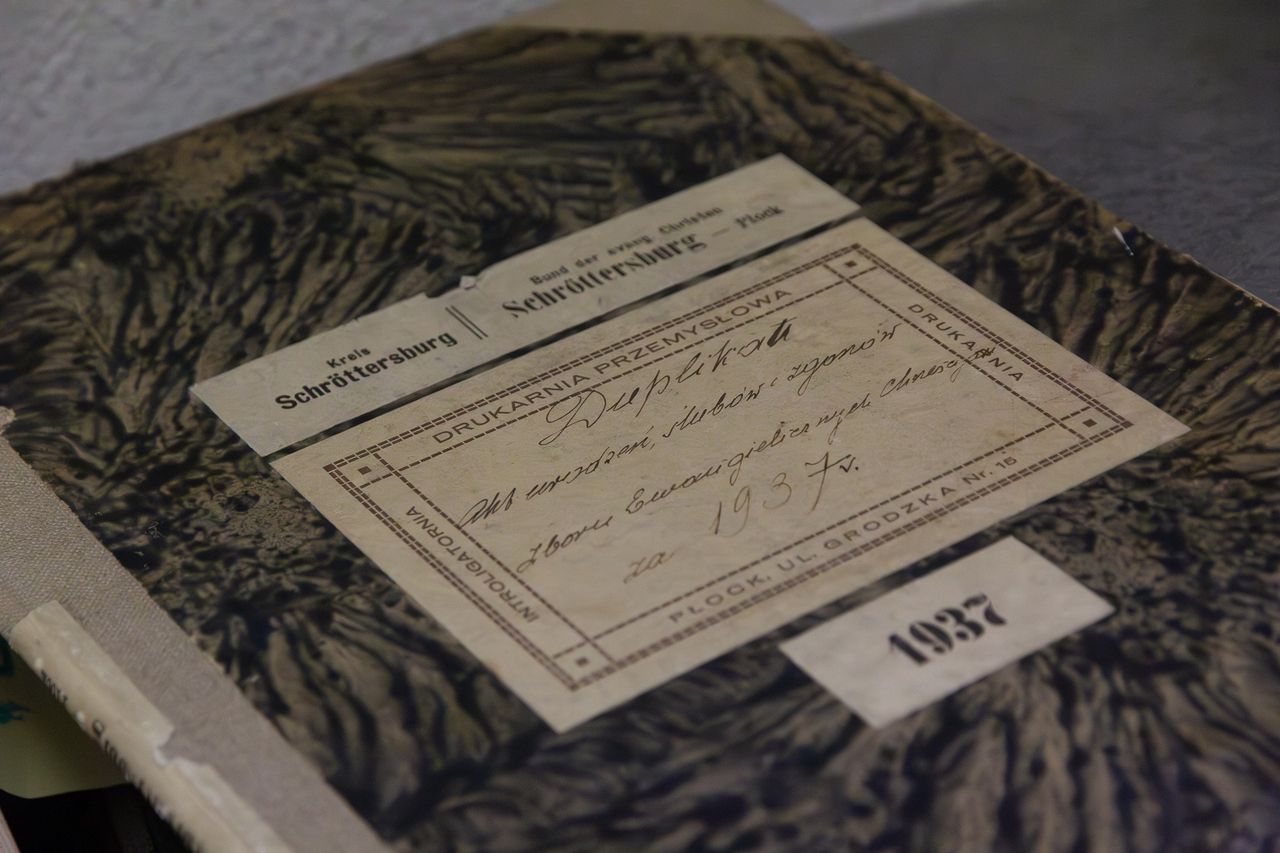 Kreis
Schröttersburg
Bund der evang. Christen
Schröttersburg — Płock
DRUKARNIA PRZEMYSŁOWA
DRUKARNIA
INTROLIGATORNIA
Duplikat
Akt urodzeń, ślubów i zgonów
zboru Ewangielicznych Chrześcijan
za 1937 r.
PŁOCK, UL. GRODZKA Nr. 15
1937